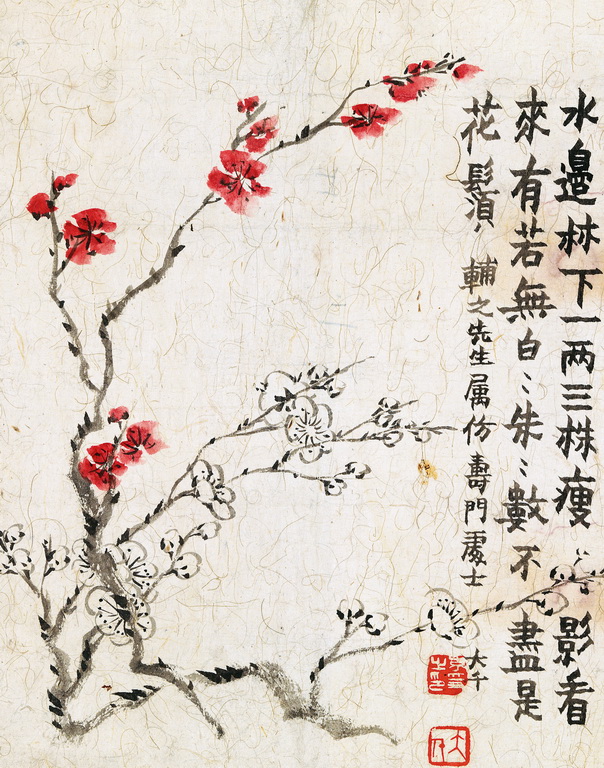 水邊林下一两三株瘦影看
來有若無白〻朱〻數不盡是
花鬚 輔之先生属仿壽門處士
大千